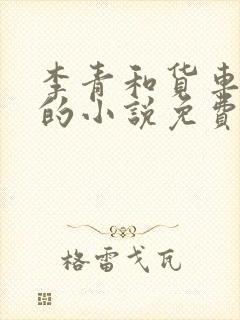 李青和货車
的小說免費
格雷戈瓦